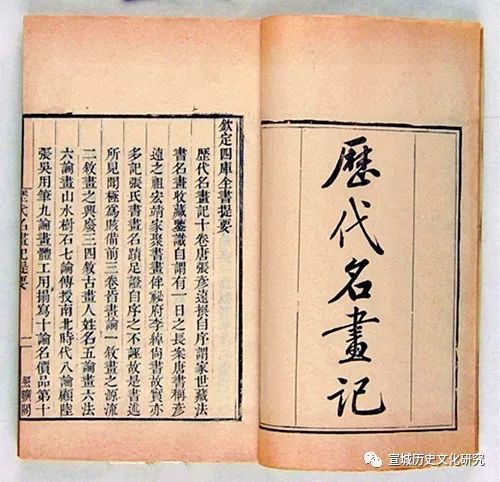 歷代名畫記
欽定四庫全書提要
歷代名畫記十卷唐張彥遠撰自序謂家世藏法
書名畫收藏鑒識自謂有一日之長案唐書稱彥
遠之祖宏靖家聚書畫侔祕府李綽尚書故實亦
多記張氏書畫名蹟足證自序之不誣故是書述
所見聞極為賅備前三卷皆畫論一敘畫之源流
二敘畫之興廢三四敘古畫人姓名五論畫六法
六論畫山水樹石七論傳授南北時代八論顧陸
張吳用筆九論畫體工用搨寫十論名價品第十
歷代名畫記提要 一 照曠閣
宣城历史文化研究